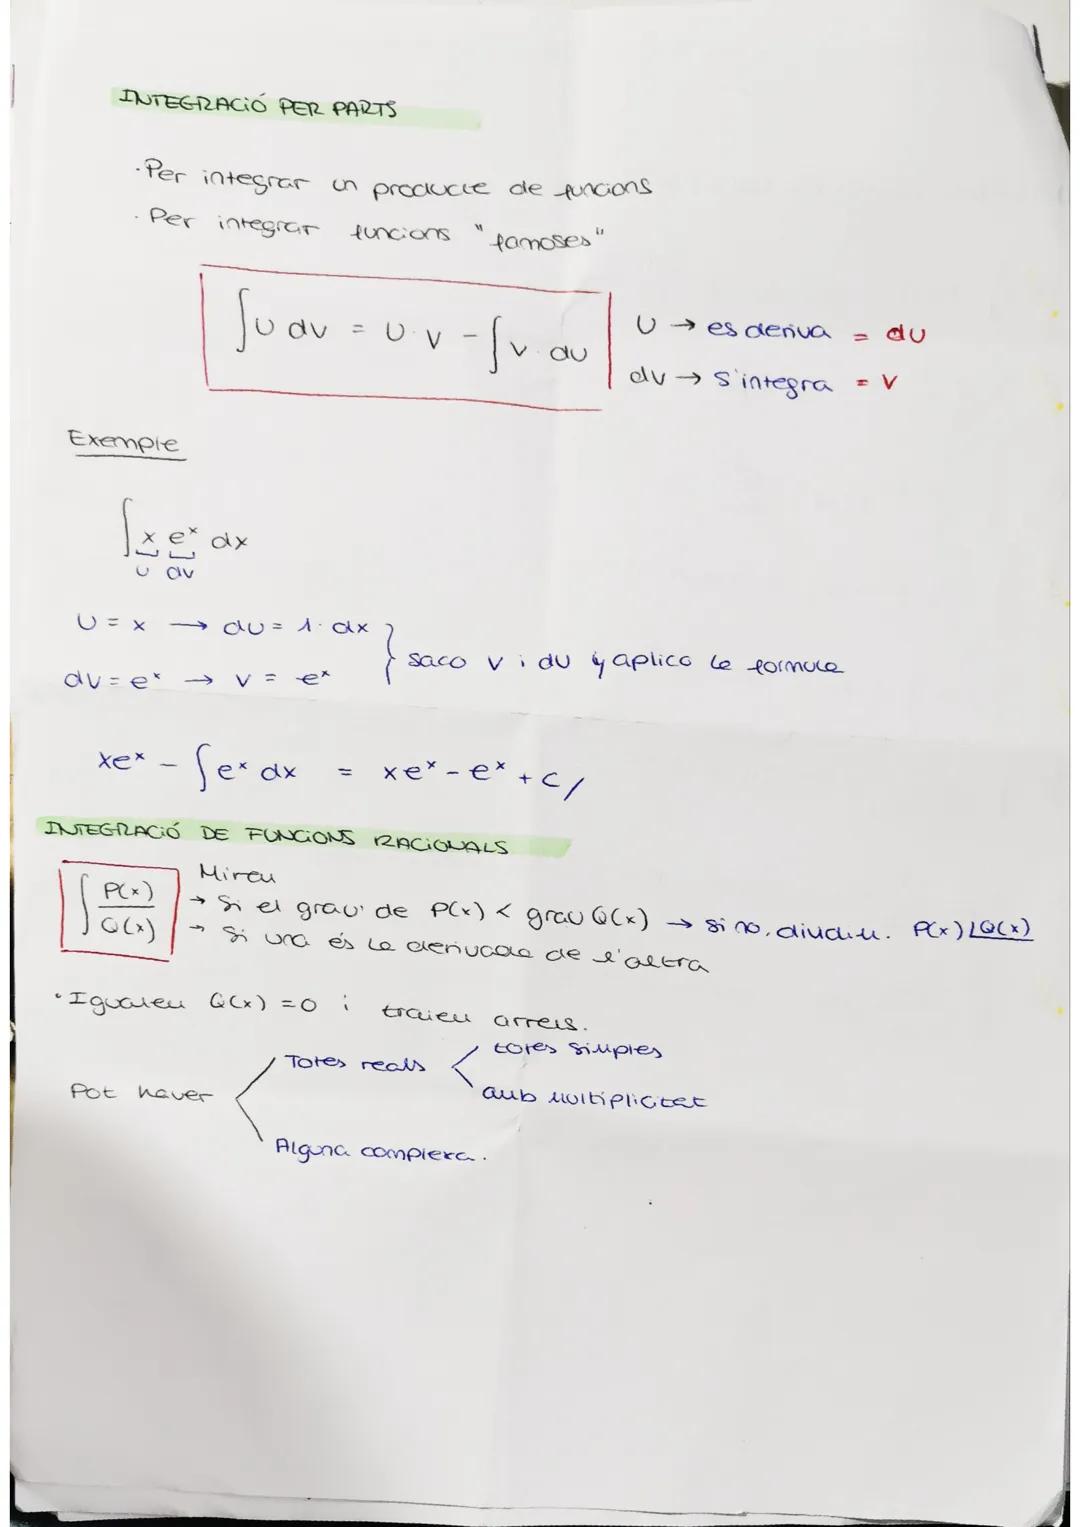 INTEGRACIÓ PER PARTS
· Per integrar un producte de funcions
· Per integrar funcions "famoses"
∫u dv = u·v - ∫v·du
u → es deriva = du
dv → s'integra = v
Exemple
∫x eˣ dx
u dv
u = x → du = 1·dx
dv = eˣ → v = eˣ
} saco v i du y aplico la formula
xeˣ - ∫eˣ dx = xeˣ - eˣ + c /
INTEGRACIÓ DE FUNCIONS RACIONALS
∫ P(x)/Q(x)
Mireu
→ Si el grau de P(x) < grau Q(x) → si no, dividiu. P(x) |Q(x)
→ Si una és la derivada de l'altra
· Igualeu Q(x) = 0 i traieu arrels.
Pot haver
Totes reals
totes simples
amb multiplicitat
Alguna complexa.